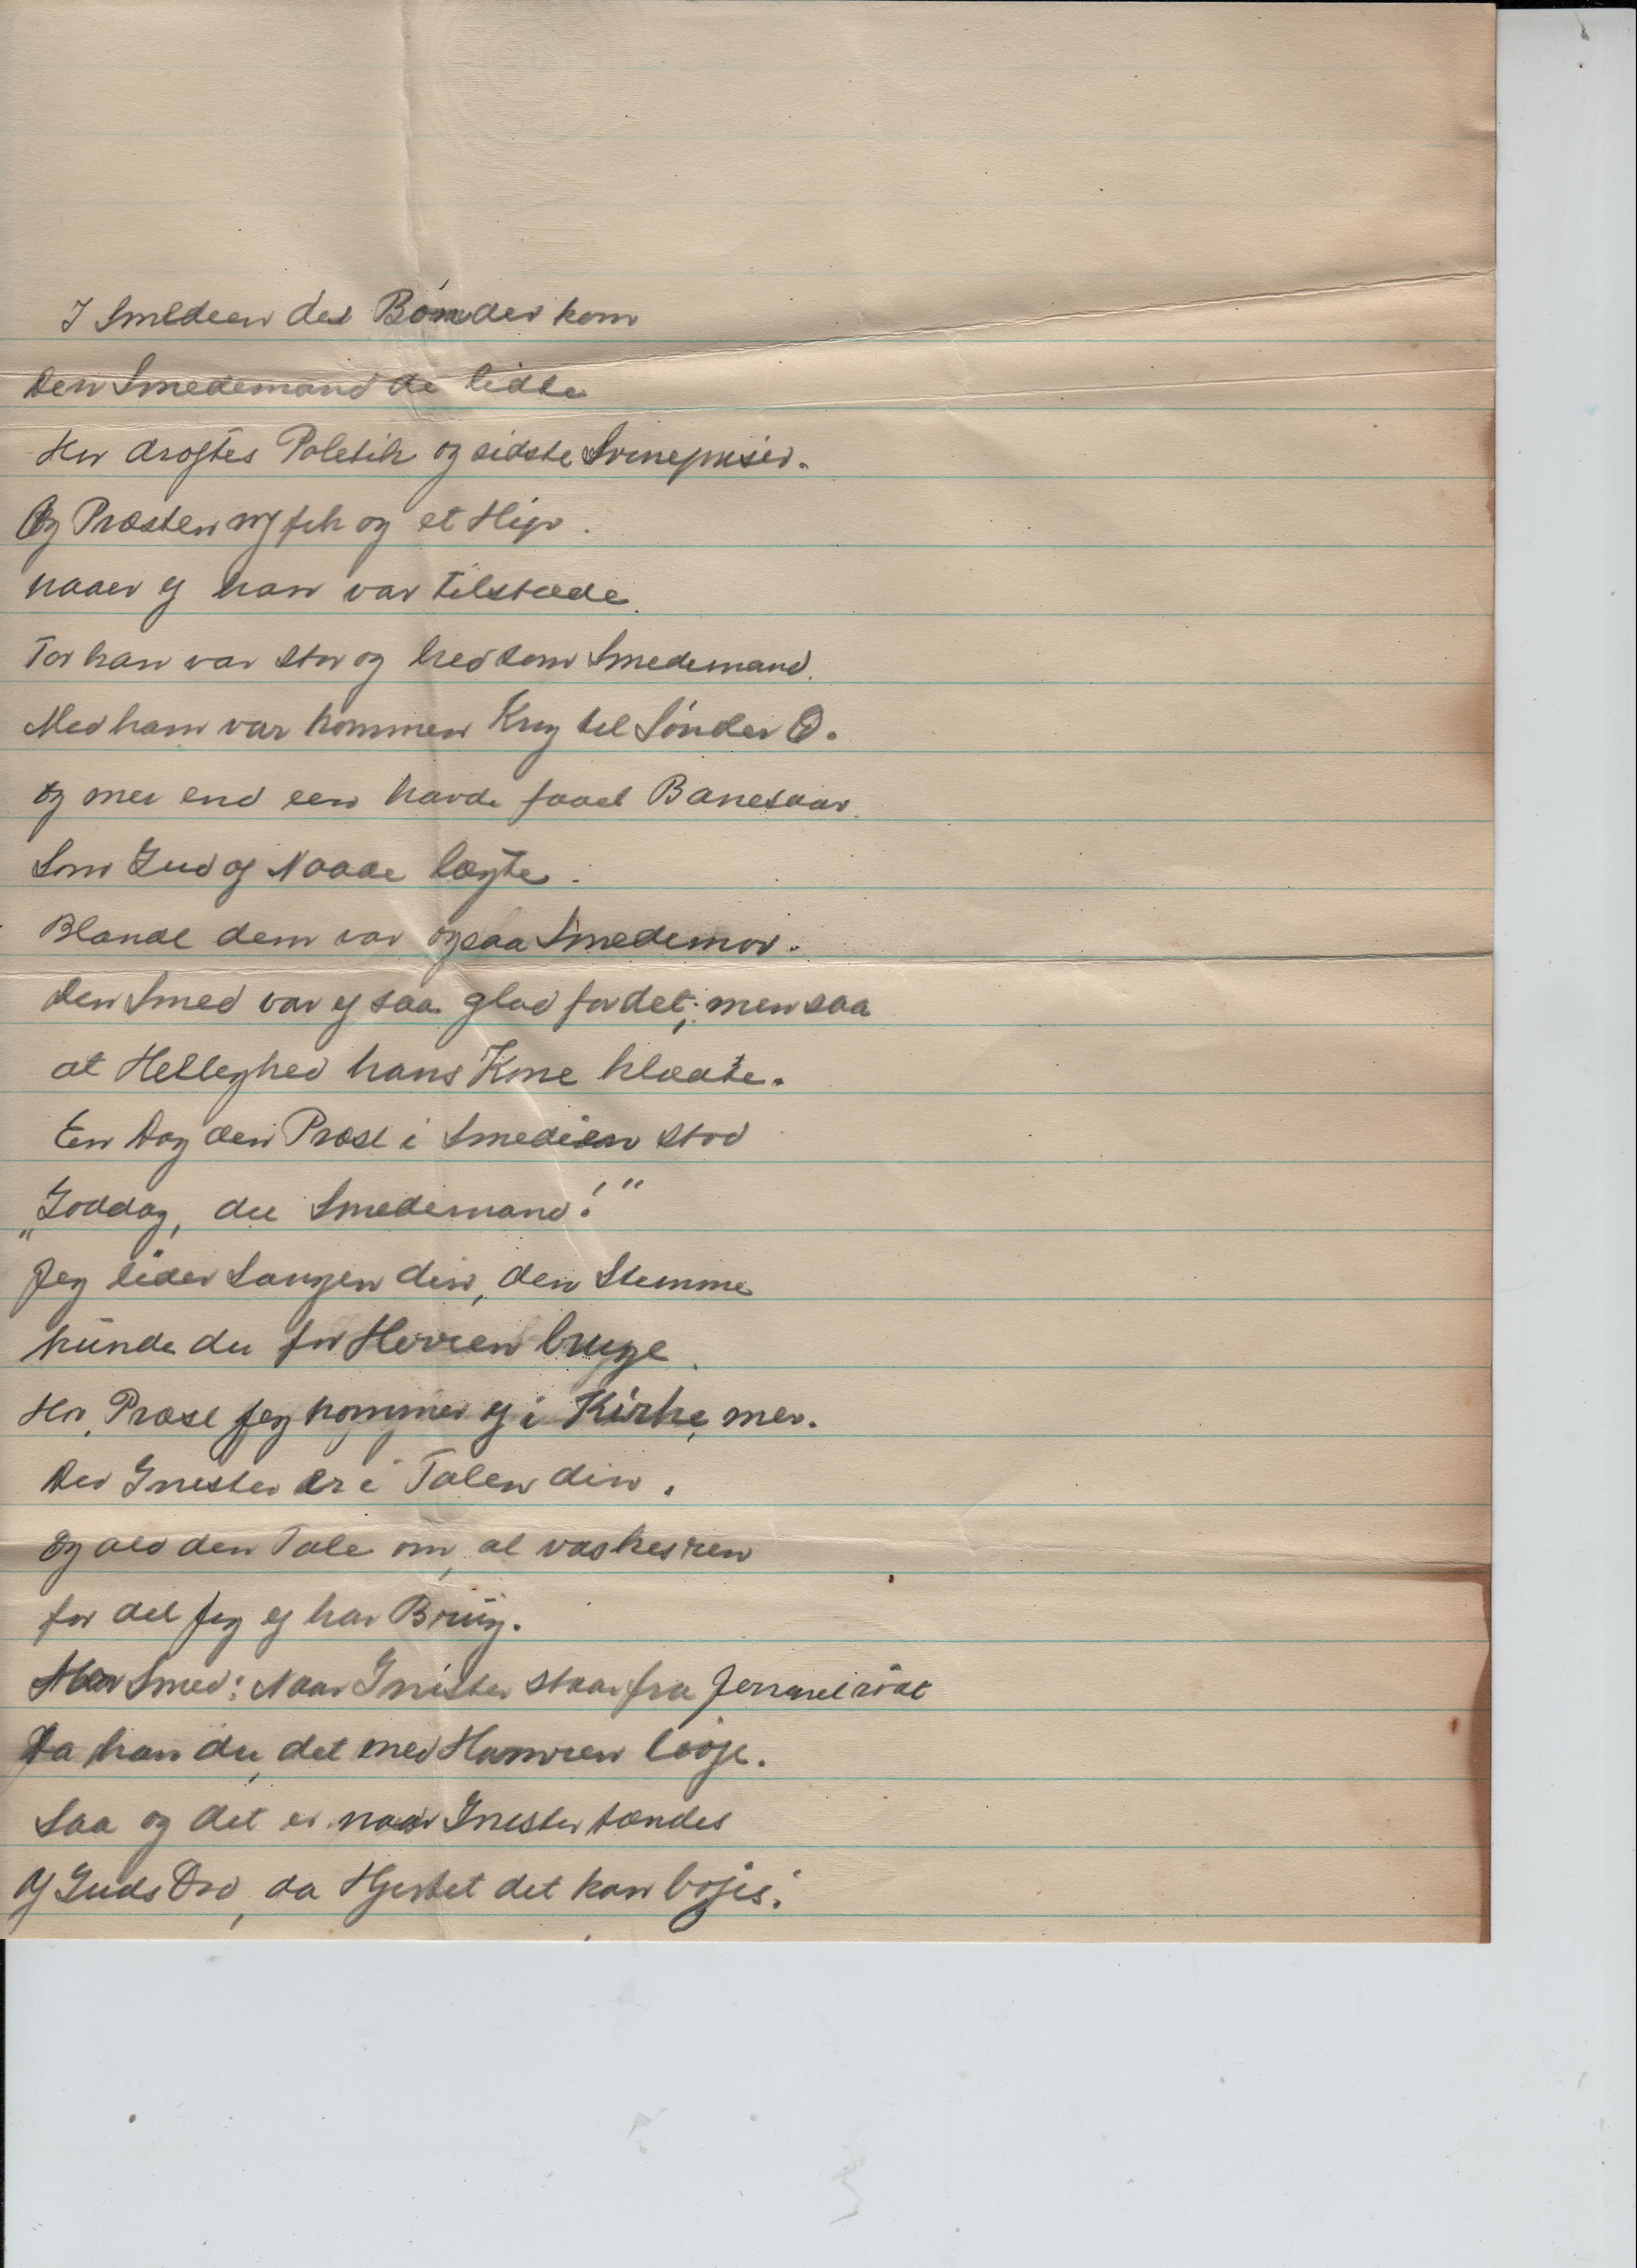 I Smedeen der Bønder kom
Den Smedemand de lidte
Her drøftes Poletik og sidste Svinepriser.
Og Præsten ny fik og et Hip.
naaer ej han var tilstæde.
For han var stor og bred som Smedemand.
Med ham var kommen Krig til Sønder O.
og mer end een havde faaet Banesaar.
Som Gud og Naade lægte.
Blandt dem var ogsaa Smedemor.
den Smed var ej saa glad for det; men saa
at Hellighed hans Kone klædte.
En Dag den Præst i Smedien stod
„Goddag, du Smedemand!"
Jeg lider Sangen din, den Stemme
kunde du for Herren bruge.
Hr. Præst Jeg kommer ej i Kirke, mer.
Der Gnister er i Talen din.
Og ald den Tale om, at vaskes ren
for det Jeg ej har Brug.
Smed: Naar Gnister staar fra Jernet rødt
Da kan du, det med Hamren bøje.
Saa og det er naar Gnister tændes
Af Guds Ord, da Hjertet det kan bøjes.